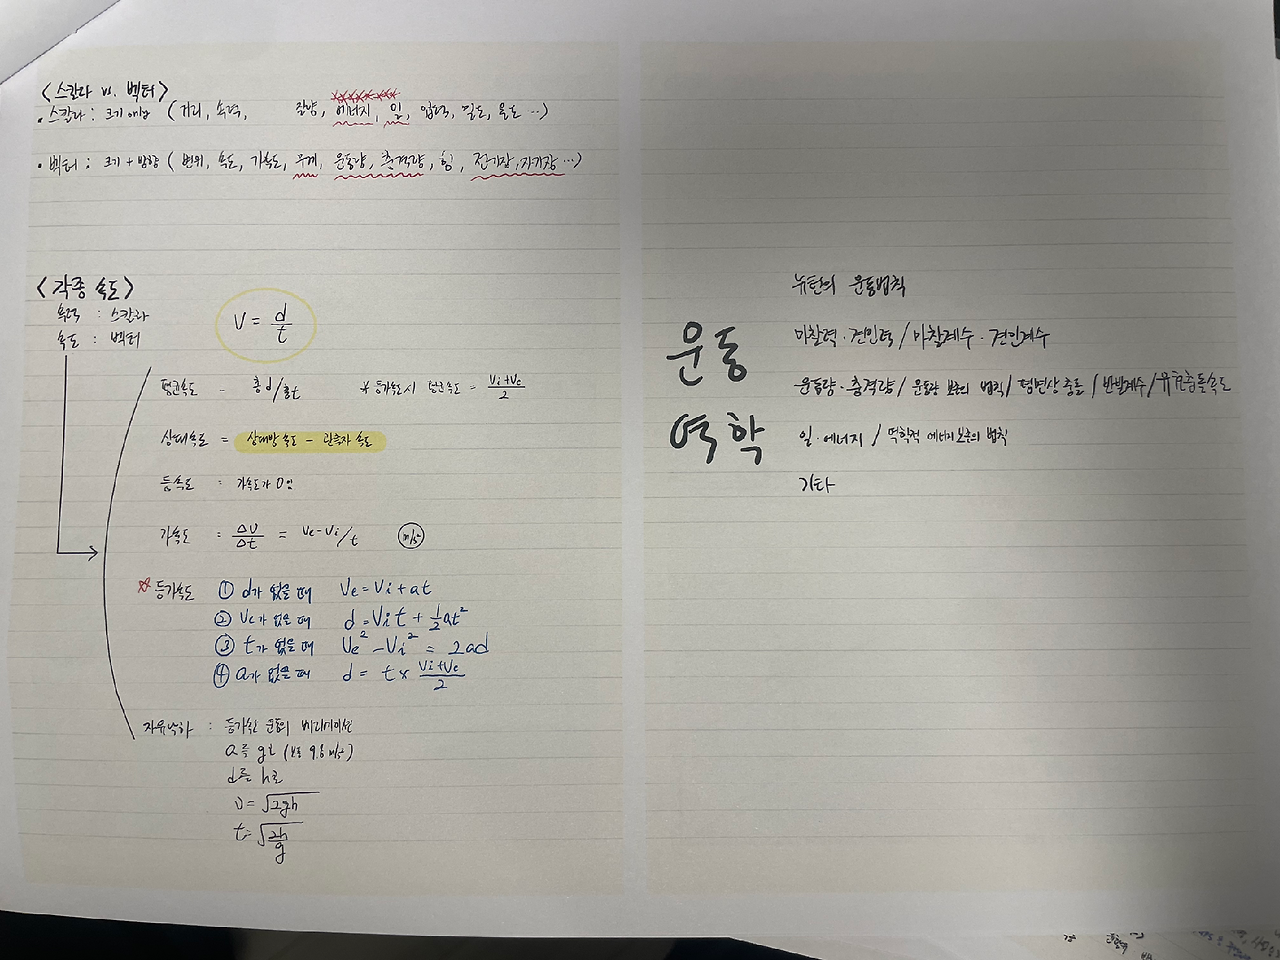 <스칼라 vs. 벡터>
• 스칼라 : 크기 에만 (거리, 속력, 질량, 에너지, 일, 압력, 밀도, 온도 …)
• 벡터 : 크기 + 방향 (변위, 속도, 가속도, 무게, 운동량, 충격량, 힘, 전기장, 자기장 …)
<각종 속도>
속력 : 스칼라
속도 : 벡터
V = d/t
평균속도 = 총 d/총t * 등가속도시 평균속도 = Vi+Ve/2
상대속도 = 상대방 속도 - 관측자 속도
등속도 : 가속도가 0인
가속도 : ΔV/Δt = Ve-Vi/t m/s²
☆ 등가속도 ① d가 없을 때 Ve = Vi + at
② Ve가 없을 때 d = Vit + 1/2at²
③ t가 없을 때 Ve² - Vi² = 2ad
④ a가 없을 때 d = t × Vi+Ve/2
자유낙하 : 등가속 운동의 바리에이션
a를 g로 (보통 9.8 m/s²)
d를 h로
v = √2gh
t = √2h/g
운동
역학
뉴턴의 운동법칙
마찰력 · 견인력 / 마찰계수 · 견인계수
운동량 · 충격량 / 운동량 보존의 법칙 / 평면상 충돌 / 반발계수 / 유효충돌속도
일 · 에너지 / 역학적 에너지 보존의 법칙
기타